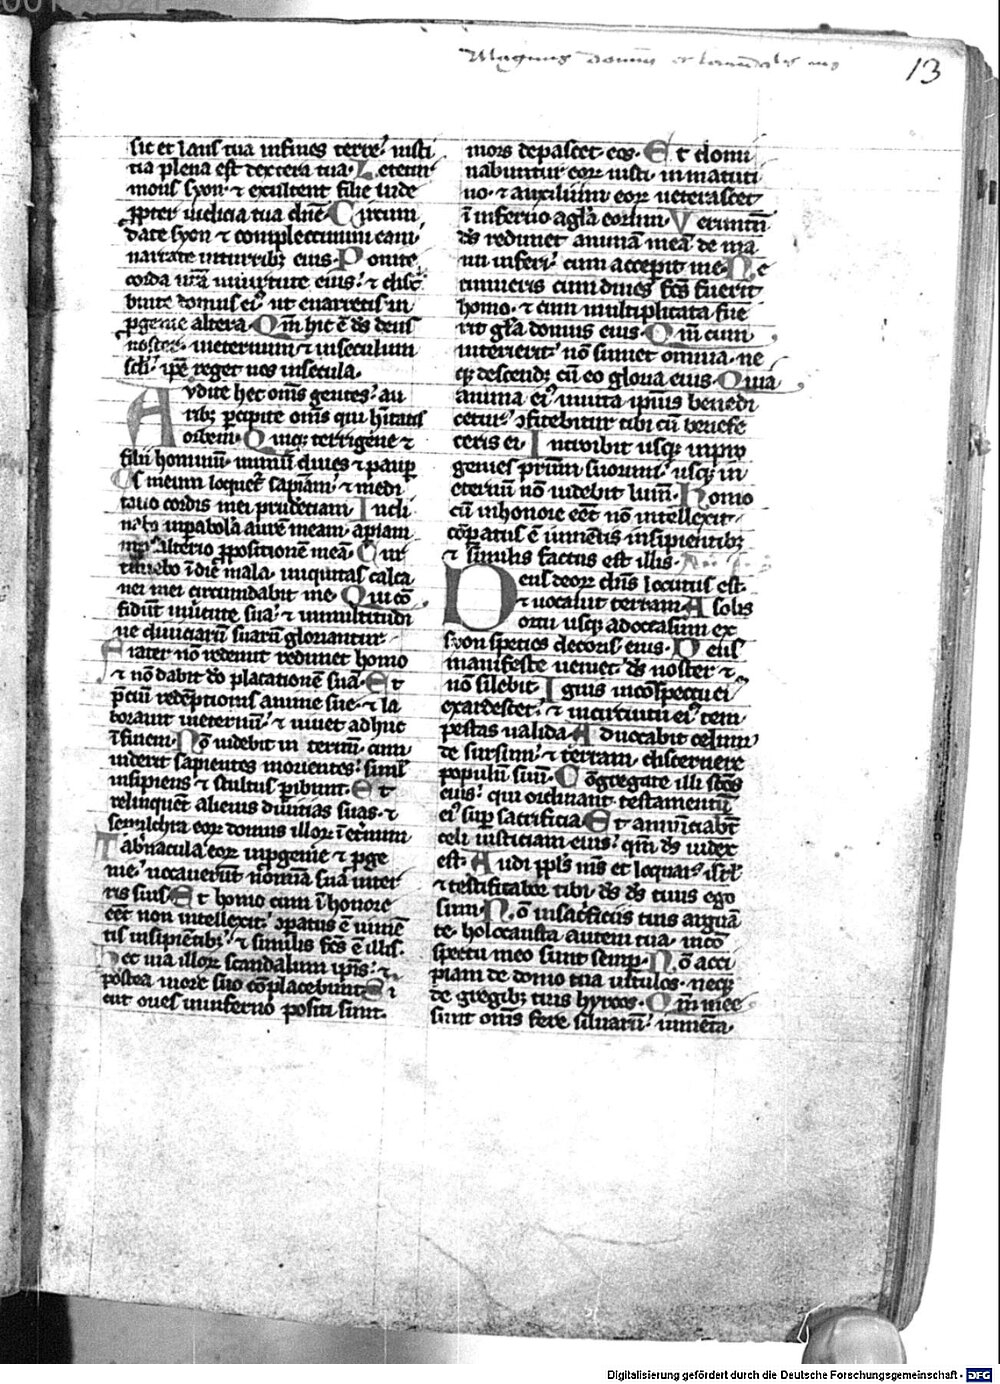 Magnus dominus et laudabilis nis
13
sic et laus tua in fines terre· iusti
tia plena est dextera tua· Letetur
mons syon· ⁊ exultent filie iude
ꝓpter iudicia tua dn̄e· Circum
date syon ⁊ complectimini eam·
narrate in turribꝫ eius· Ponite
corda ur̄a in uirtute eius· ⁊ dist̾
buite domus ei᷒· ut enarretis in
ꝓgenie altera· Qm̄ hic ē ds̄ deus
noster· in eternum ⁊ in seculum
scl̄i· ip̄e reget nos in secula·
Audite hec om̄s gentes· au
ribꝫ ꝑcipite om̄s qui hītatis
orbem· Quiqꝫ terrigene ⁊
filii hominum· in unū diues ⁊ paup̱
Os meum loquet̾ sapīam· ⁊ medi
tatio cordis mei prudētiam· Incli
nabo in ꝑabolā aurē meam· aꝑiam
in psalterio ꝓpositionē meā· Cur
timebo ī die mala· iniquitas calca
nei mei circumdabit me· Qui cō
fidūt in uirtute sua· ⁊ in multitudi
ne diuiciarū suarū gloriantur·
Frater nō redemit redimet homo
⁊ nō dabit do placationē suā· Et
p̄ciū redēptionis anime sue· ⁊ la
borauit in eternū· ⁊ uiuet adhuc
ī finem· Nō uidebit in teritū· cum
uiderit sapientes morientes· simul
insipiens ⁊ stultus ꝑibunt· Et
relinquēt alienis diuitias suas· ⁊
sepulchra eoꝝ domus illoꝝ ī et̾num
Tab̾nacula eoꝝ in ꝓgenie ⁊ ꝓge
nie· uocauerūt nomīa sua in ter
ris suis· Et homo cum ī honore
eēt non intellexit· ꝯpatus ē iumē
tis insipientibꝫ· ⁊ similis fc̄s ē illis·
Hec uia illoꝝ scandalum ip̄is· ⁊
postea in ore suo cōplacebunt· Si
cut oues in inferno positi sunt·
mors depascet eos· Et domi
nabuntur eoꝝ iusti· in matuti
no· ⁊ auxilium eoꝝ ueterascet
ī inferno a gl̄a eorum· Verumtn̄
ds̄ redimet animā meā de ma
nu inferi· cum acceperit me· Ne
timueris cum diues fc̄s fuerit
homo· ⁊ cum multiplicata fue
rit gl̄a domus eius· Qm̄ cum
interierit· nō sumet omnia· ne
qꝫ descendꝫ cū eo gloria eius· Quia
anima ei᷒ in uita ipsius benedi
cetur· ꝯfitebitur tibi cū benefe
ceris ei· Introibit usqꝫ in pro
genies prīum suorum· usqꝫ in
eternū nō uidebit lum̄· Homo
cū in honore eēt nō intellexit·
cōpatus ē iumētis insipientibꝫ
⁊ similis factus est illis·
Deus deoꝝ dn̄s locutus est·
⁊ uocauit terram· A solis
ortu usqꝫ ad occasum ex
syon species decoris eius· Deus
manifeste ueniet· ds̄ noster ⁊
nō silebit· Ignis in cōspectu ei᷒
exardescet· ⁊ in circuitu ei᷒ tem
pestas ualida· Aduocabit celum
de sursum· ⁊ terram· discernere
populū suū· Cōgregate illi sc̄os
eius· qui ordinant testamentū
ei᷒ sup̱ sacrificia· Et annūciabt̄
celi iusticiam eius· qm̄ ds̄ iudex
est· Audi ppl̄s m̄s et loquar· isrl̄
⁊ testificabor tibi· ds̄ ds̄ tuus ego
sum· Nō in sac̾ficiis tuis arguā
te· holocausta autem tua· in cō
spectu meo sunt semp̱· Nō acci
piam de domo tua uitulos· neqꝫ
de gregibꝫ tuis hyrcos· Qm̄ mee
sunt om̄s fere siluarū· iumēta·
Digitalisierung gefördert durch die Deutsche Forschungsgemeinschaft - DFG